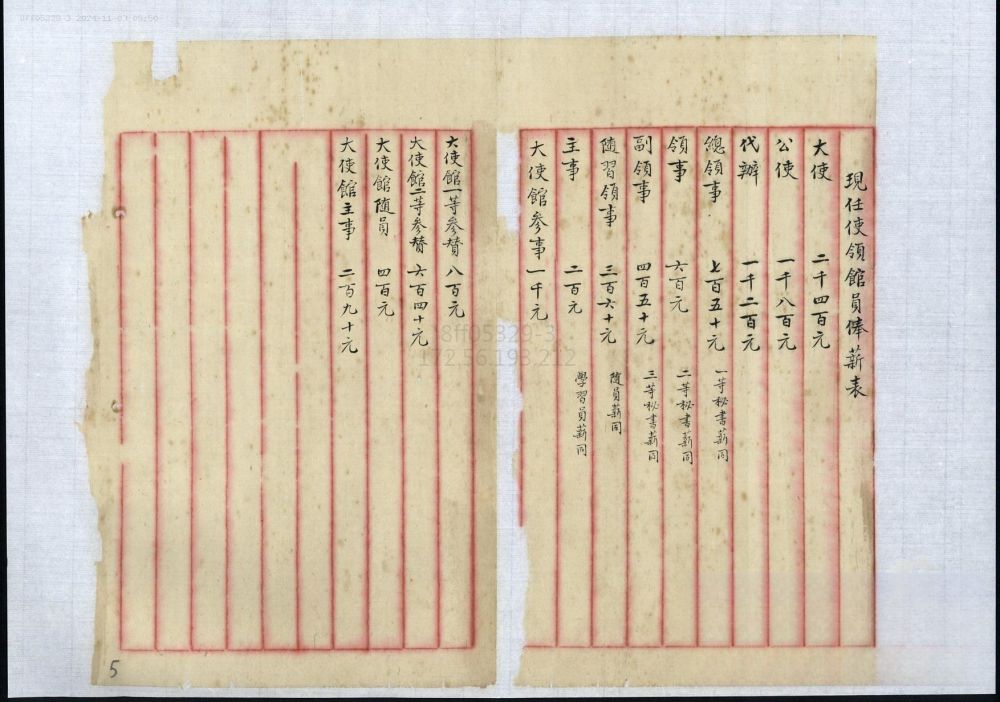 8ff05329-3 2024-11-03 09:50
現任使領館員俸薪表
大使 二千四百元
公使 一千八百元
代辦 一千二百元
總領事 七百五十元 一等秘書薪同
領事 六百元 二等秘書薪同
副領事 四百五十元 三等秘書薪同
隨習領事 三百六十元 隨員薪同
主事 二百元 學習員薪同
大使館參事 一千元
大使館一等參贊 八百元
大使館二等參贊 六百四十元
大使館隨員 四百元
大使館主事 二百九十元
8ff05329-3
172.56.193.212
5